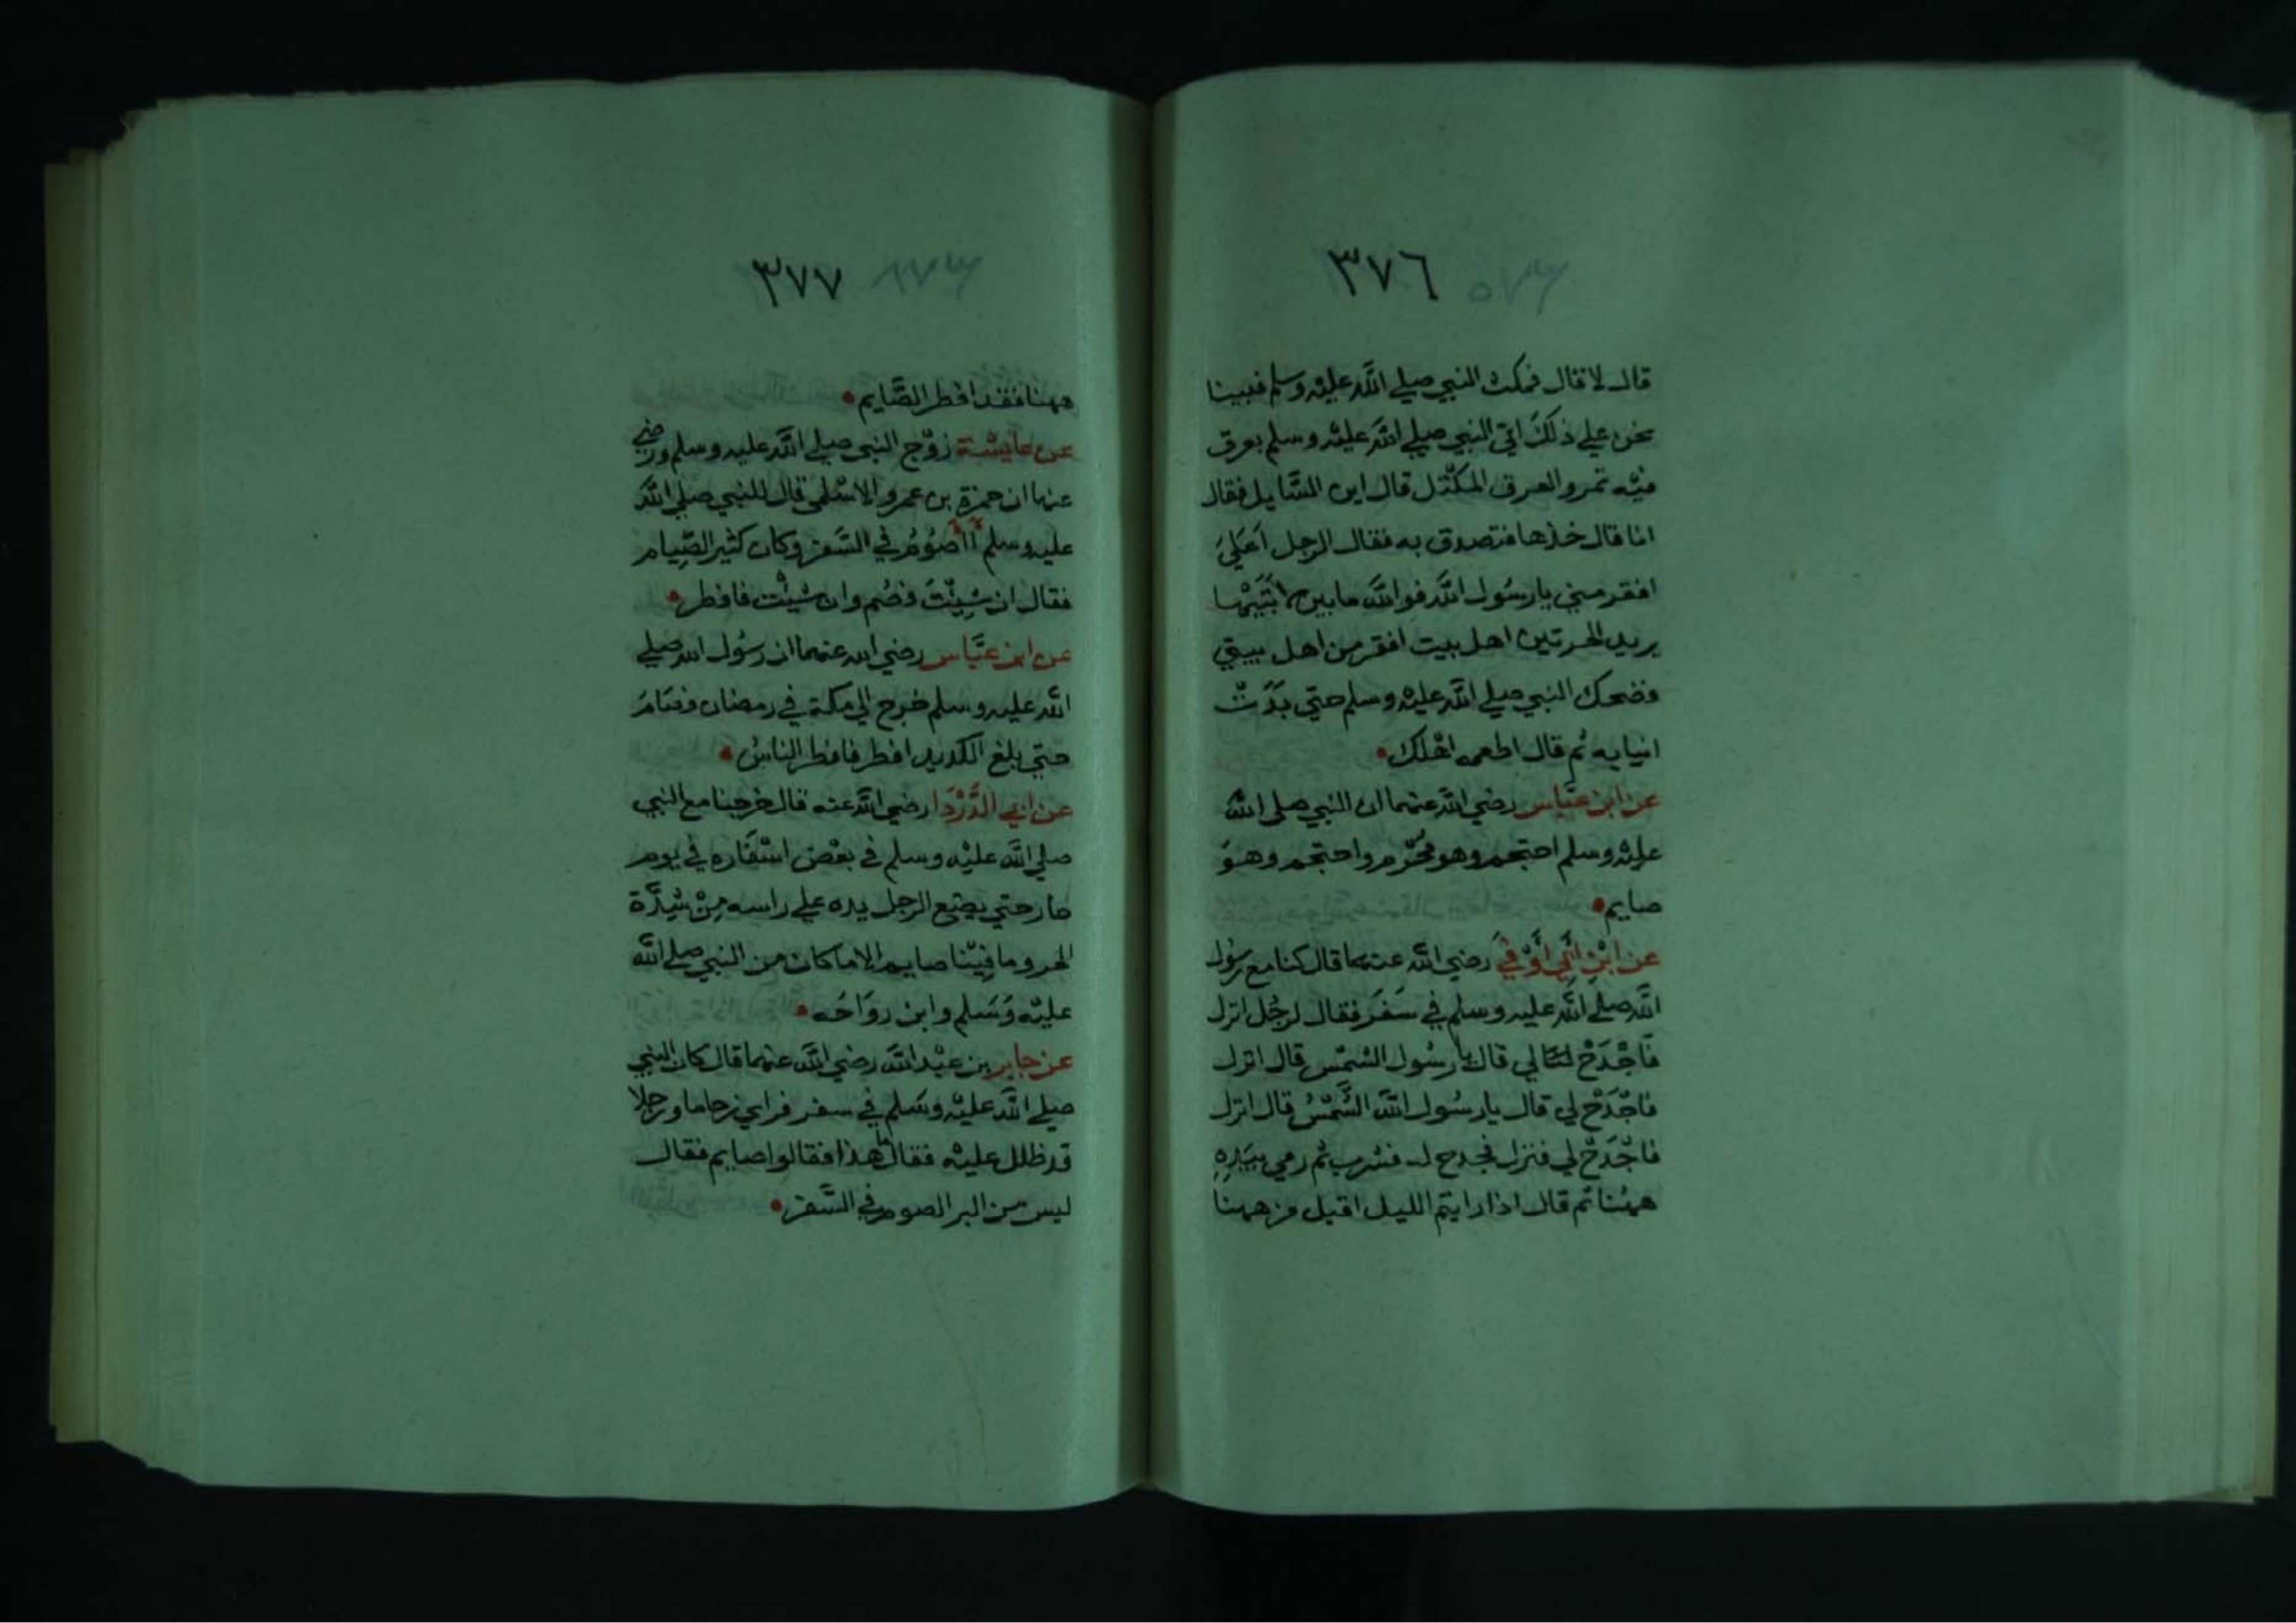 ٣٧٦
قال لا قال فمكث النبي صلي اللّه عليه وسلم فبينا
نحن علي ذلك اتي النبي صلي اللّه عليه وسلم بعرق
فيه تمر والعرق المكتل قال اين السّايل فقال
انا قال خذها فتصدق به فقال الرجل اَعَلَيَ
افقر مني يا رسُول اللَّه فو اللَّه ما بين لابَتَيْها
يريد الحرتين اهل بيت افقر من اهل بيتي
فضحك النبي صلي اللَّه عليه وسلم حتي بَدَتْ
انيابه ثم قال اطعمه اهْلك
عن ابن عبَّاس رضي اللَّه عنهما ان النبي صلي اللَّه
عليْه وسلم احتجم وهو مُحْرم واحتجم وهوَ
صايم
عن ابْنِ اَبِي اَوْفَي رضي اللَّه عنهما قال كنا مع رسُول
اللَّه صلي اللَّه عليه وسلم في سَفَر فقال لرجُل انزل
فاجْدَحْ لي قال يا رسُول الشمْس قال انزل
فاجْدَحْ لي قال يا رسُول اللَّه الشَّمْسُ قال انزل
فاجْدَحْ لي فنزل فجدح له فشرب ثم رمي بيَدِهِ
ههُنا ثم قال اذا رايتم الليل اقبل من ههنا
٣٧٧
ههنا فقد افطر الصَّايم
عن عايشة زوْج النبي صلي اللَّه عليه وسلم ورضي
عنها ان حمزة بن عمرو الاسْلمي قال للنبي صلي اللَّه
عليه وسلم أأصُوْمُ في السَّفر وكان كثير الصِّيام
فقال ان شِيْتَ فصُم وان شيْت فافطر
عن ابن عبَّاس رضي الله عنهما ان رسُول الله صلي
اللَّه عليه وسلم خرج الي مكة في رمضان فصَامَ
حتي بلغ الكديد افطر فافطر الناسُ
عن ابي الدَّرْدَا رضي اللَّه عنه قال خرجنا مع النبي
صلي اللَّه عليْه وسلم في بعْض اسْفاره في يوم
حار حتي يضع الرجل يده علي راسه مِنْ شِدَّة
الحر وما فِيْنا صايم الا ما كان من النبي صلي اللَّه
عليْه وَسَلم وابن روَاحَه
عن جابر بن عبْد اللَّه رضي اللَّه عنهما قال كان النبي
صلي اللَّه عليْه وسَلم في سفر فراي زحاما ورجلا
قد ظلل عليْه فقال ما هذا فقالوا صايم فقال
ليس من البر الصوم في السَّفر